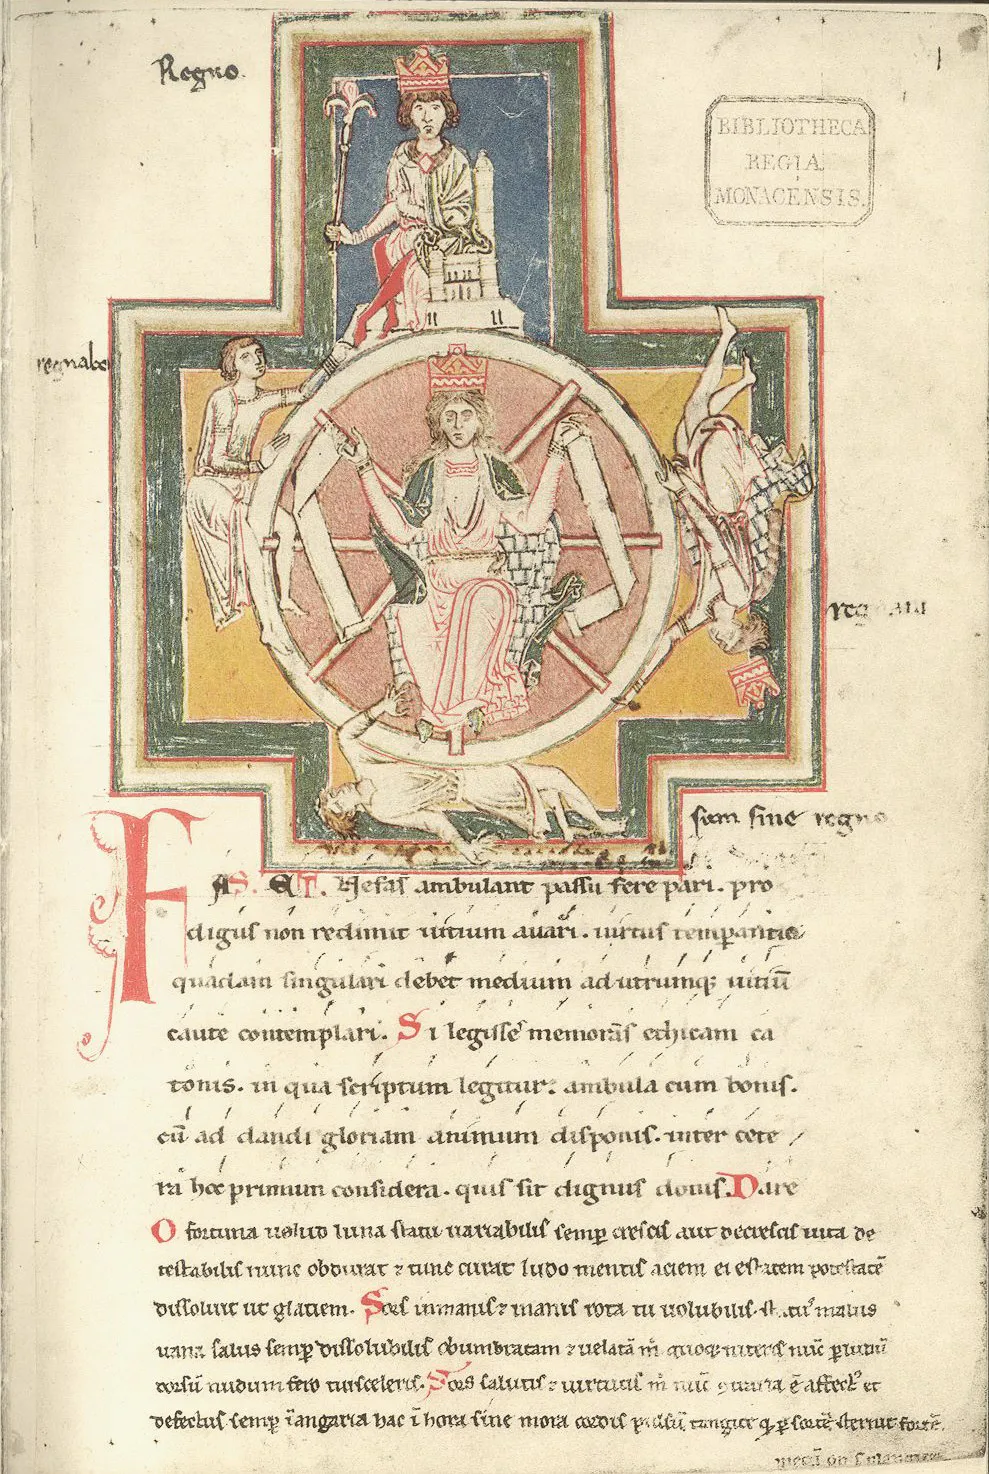 Regno
BIBLIOTHECA
REGIA
MONACENSIS.
regnabo
sum sine regno
FAS. ET. Nefas ambulant passu fere pari. pro
digus non redimit uitium auari. uirtus temperantia
quadam singulari debet medium ad utrumq; uitiū
caute contemplari. Si legisse memoras ethicam ca
tonis. in qua scriptum legitur. ambula cum bonis.
cū ad dandi gloriam animum disponis. inter cete
ra hoc primum considera. quis sit dignus donis. Dare
O fortuna uelud luna statu uariabilis semp crescis aut decrescis uita de
testabilis nunc obdurat & tunc curat ludo mentis aciem egestatem potestatē
dissoluit ut glatiem. Sors inmanis & inanis rota tu uolubilis malus
uana salus semp dissolubilis obumbratam & uelatā m quoq; niteris nūc
dorsū nudum fero tui sceleris. Sors salutis & uirtutis m nūc ē affect et
defectus semp ī angaria hac ī hora sine mora cordis tangite